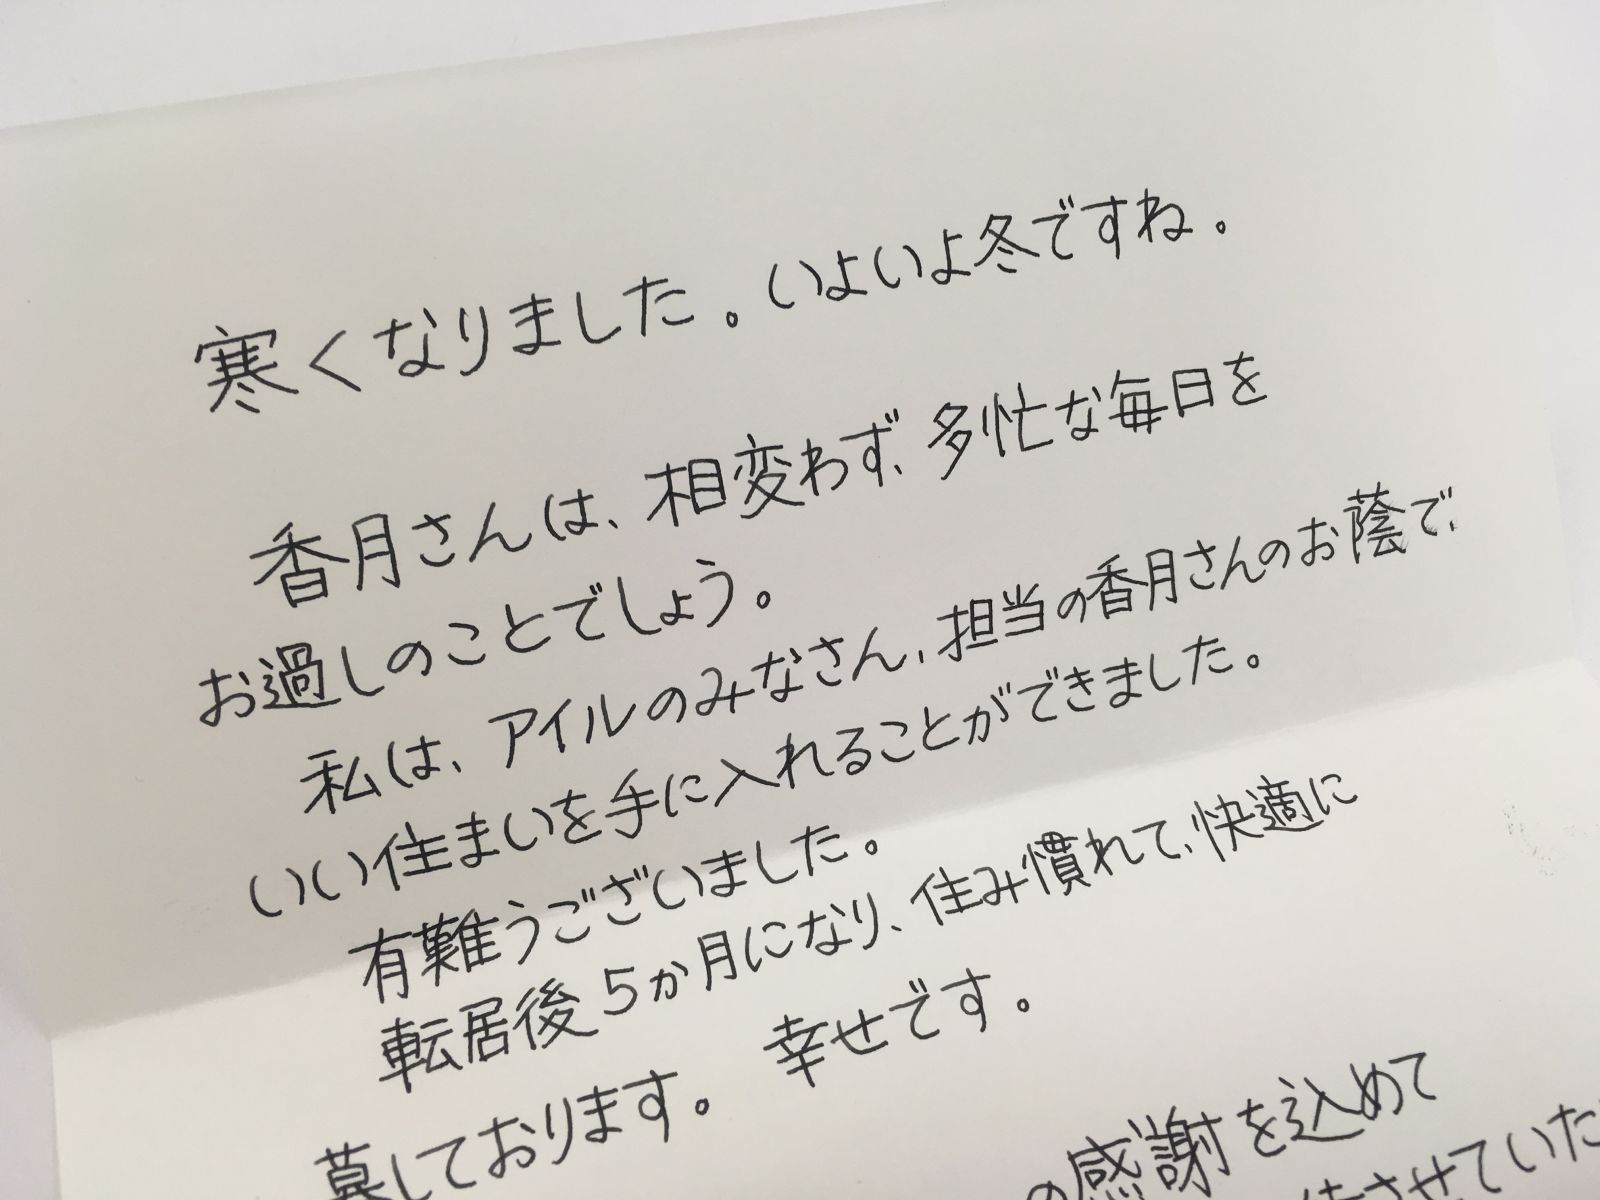 寒くなりました。いよいよ冬ですね。
香月さんは、相変わらず、多忙な毎日を
お過しのことでしょう。
私は、アイルのみなさん、担当の香月さんのお蔭で、
いい住まいを手に入れることができました。
有難うございました。
転居後5か月になり、住み慣れて、快適に
暮しております。 幸せです。
の感謝を込めて
させていた